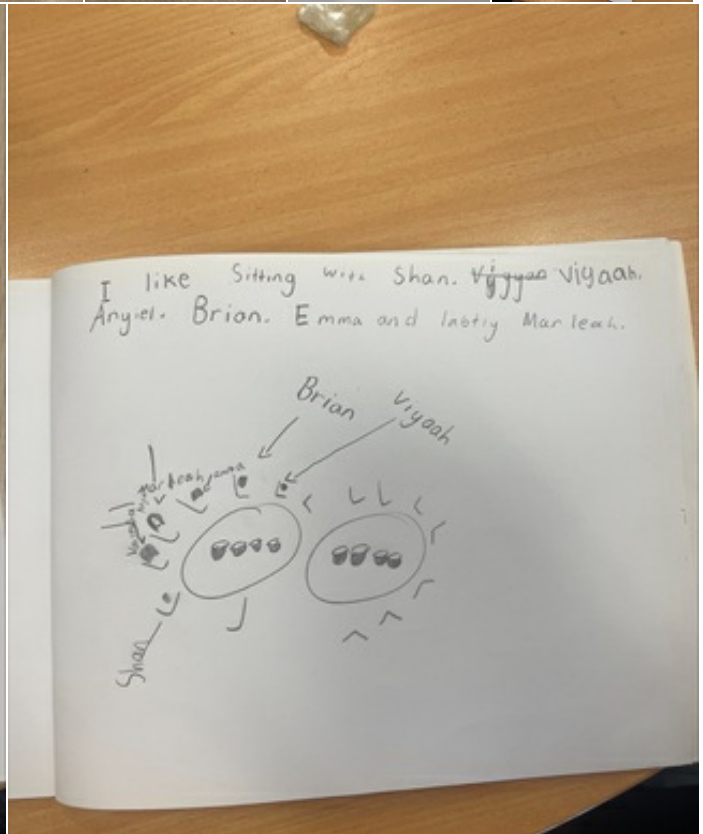 I like Sitting with Shan. Viyyaa Viyaah.
Anyiel. Brian. Emma and lastly Marleah.
Brian
Viyaah
Marleah
emma
Shan